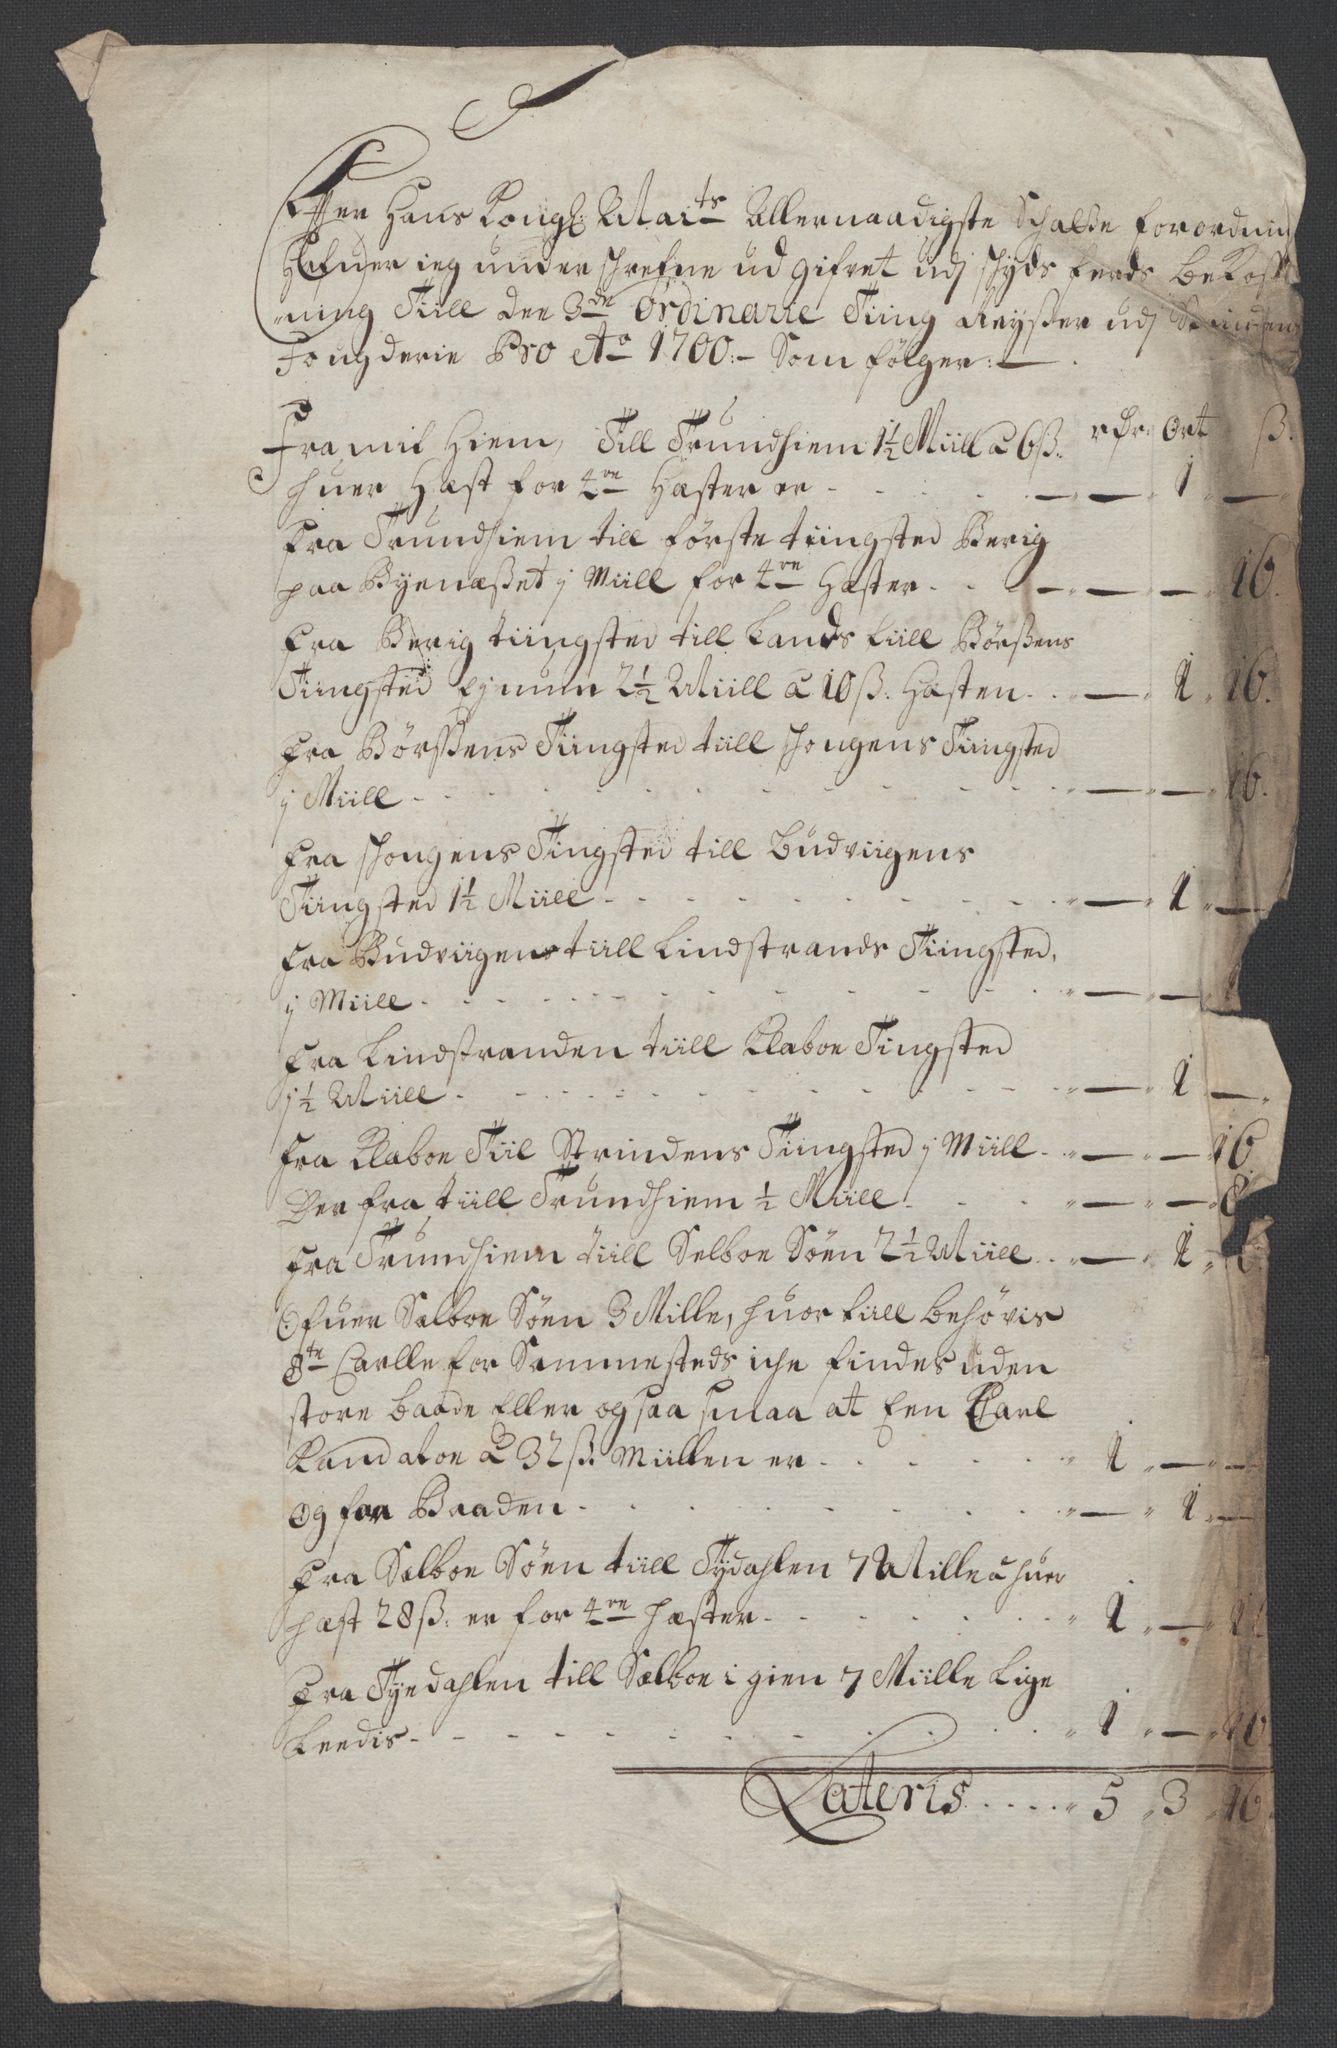 Efter Hans Kongl: Maits Allernaadigste Schatte forordnin
Hafuer ieg under schrefne ud gifvet udj schyds ferds bekost
ning Till den 3de Ordinarie Ting Reyser udj Strindens
Fougderie Pro Ao 1700:- Som følger:
Fra mit Hiem, Till Trundhiem 1½ Miill a 6 ß. rdr Ort ß.
huer Hæst for 4re Hæster er - - 1 -
Fra Trundhiem till første tiingsted Berig
paa Byenæsset j Miill for 4re Hæster - - 16.
Fra Berig tiingsted till Lands till Børssens
Tiingsted Ejnum 2½ Miill a 10 ß. Hæsten - 1 16.
Fra Børssens Tiingsted till schougens Tiingsted
j Miill - - 16.
Fra schougens Tingsted till Budviigens
Tiingsted 1½ Miill - 1 -
Fra Budviigens till Lindstrands Tiingsted,
j Miill - -
Fra Lindstranden till Klaboe Tingsted
1½ Miill - 1 -
Fra Klaboe Till Strindens Tiingsted j Miill - - 16
Der fra till Trundhiem ½ Miill - - 8
Fra Trundhiem till Selboe Søen 2½ Miill - 1
Ofuer Selboe Søen 3 Mille, huor till behøvis
8te Carlle for Sammesteds iche findes uden
store baade Eller og saa smaa at Een Karl
Kand a 32 ß. Miillen er 1 - -
Og for Baaden - 1 -
Fra Selboe Søen till Tydahlen 7 Mille a huer
hæst 28 ß. er for 4re hæster 1 -
Fra Tyedahlen till Sælboe igien 7 Miille Lige
Leedis 1 - 16
Lateris 5 3 16.